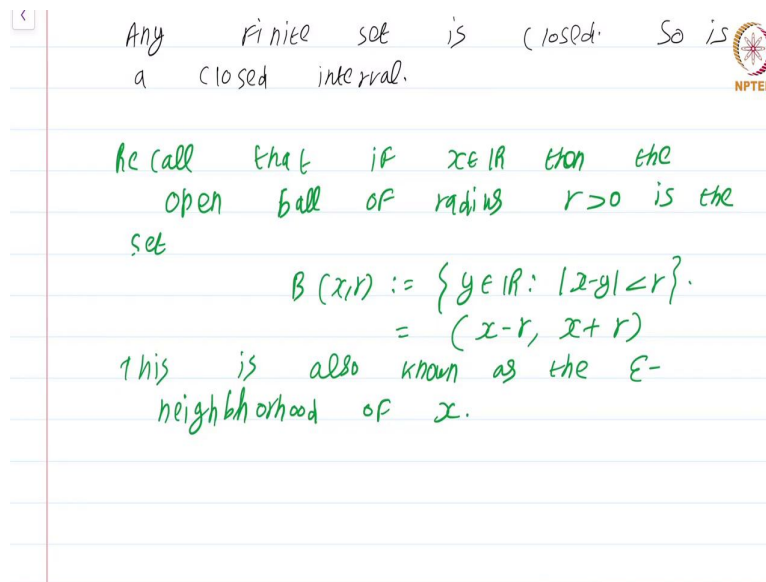 Any finite set is closed. So is
a closed interval.
NPTEL
Recall that if x∈ℝ then the
open ball of radius r>0 is the
set
B(x,r) := {y∈ℝ: |x-y|<r}.
= (x-r, x+r)
This is also known as the ε-
neighbhorhood of x.